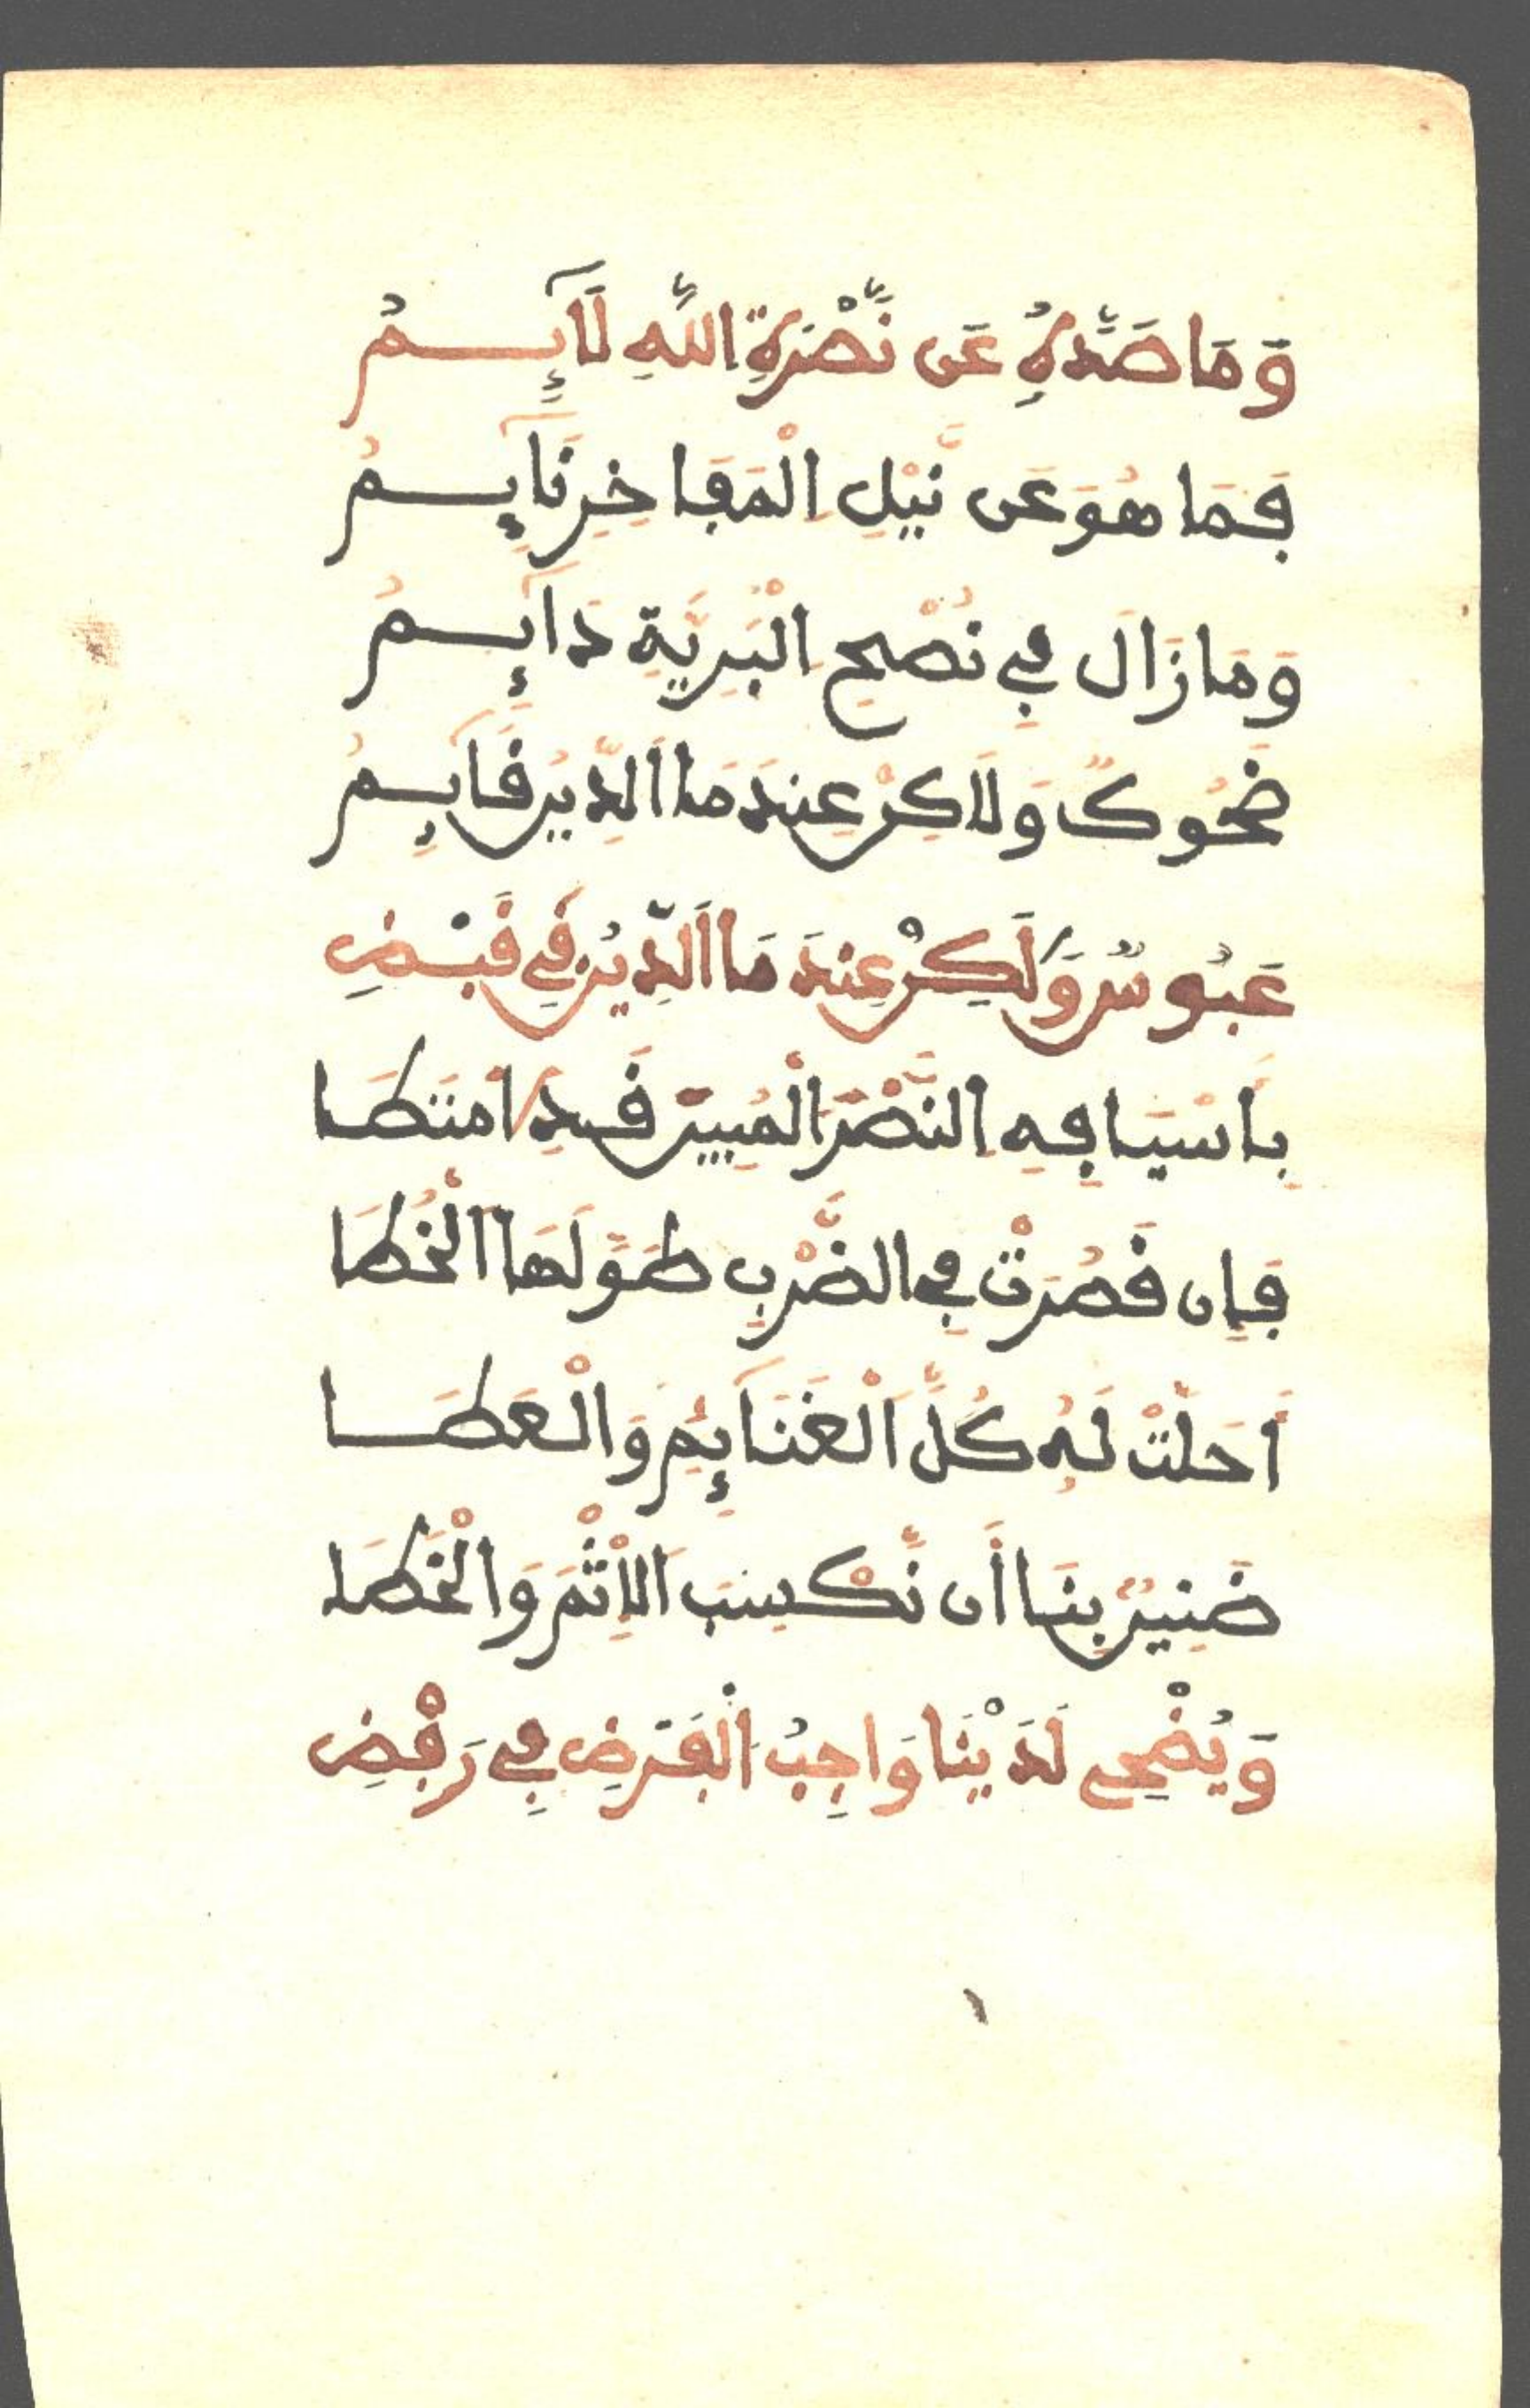 وَمَا صَدَّهُ عَن نَّصْرَةِ اللَّهِ لَآئِمُ
فَمَا هُوَ عَن نَّيْلِ الْمَفَاخِرِ نَآئِمُ
وَمَا زَالَ فِي نُصْحِ الْبَرِيَّةِ دَآئِمُ
ضَحُوكٌ وَلَاكِنْ عِندَمَا الدِّينُ قَآئِمُ
عَبُوسٌ وَلَكِنْ عِندَمَا الدِّينُ فِي قَبْضِ
بِأَسْيَافِهِ النَّصْرَ الْمُبِينَ قَدِ امْتَطَا
فَإِن قَصُرَتْ فِي الضَّرْبِ طَوَّلَهَا الْخُطَا
أَحَلَّتْ لَهُ كُلَّ الْغَنَآئِمِ وَالْعَطَا
ضَنِينٌ بِنَا أَن نَّكْسِبَ الْإِثْمَ وَالْخَطَا
وَيُضْحِي لَدَيْنَا وَاجِبُ الْفَرْضِ فِي رَفْضِ